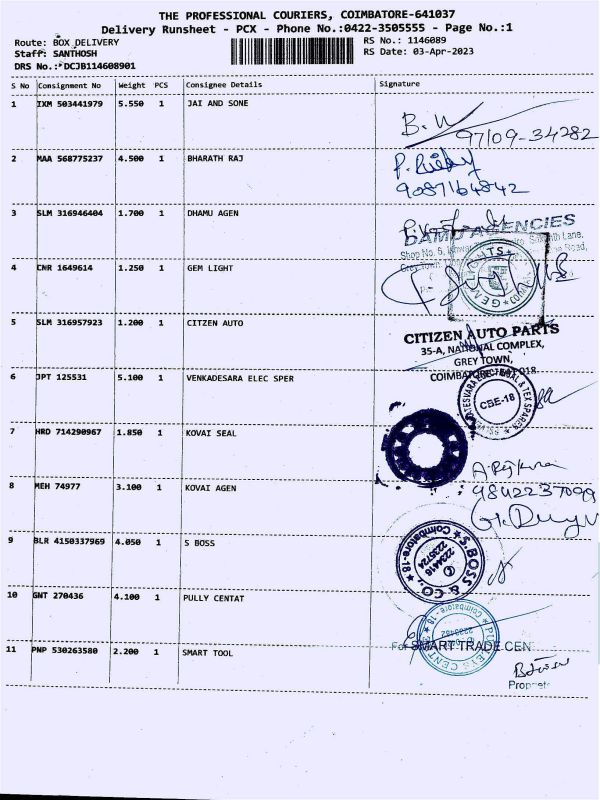 THE PROFESSIONAL COURIERS, COIMBATORE-641037
Delivery Runsheet - PCX - Phone No.:0422-3505555 - Page No.:1
Route: BOX DELIVERY
RS No.: 1146089
Staff: SANTHOSH
RS Date: 03-Apr-2023
DRS No.: DCJB114608901
S No Consignment No Weight PCS Consignee Details Signature
1 IXM 503441979 5.550 1 JAI AND SONE
97109-34282
2 MAA 568775237 4.500 1 BHARATH RAJ
9087164842
3 SLM 316946404 1.700 1 DHAMU AGEN
DAMU AGENCIES
Shop No. 5,
4 CNR 1649614 1.250 1 GEM LIGHT
5 SLM 316957923 1.200 1 CITZEN AUTO
CITIZEN AUTO PARTS
35-A, NATIONAL COMPLEX,
GREY TOWN,
6 JPT 125531 5.100 1 VENKADESARA ELEC SPER
CBE-18
7 HRD 714290967 1.850 1 KOVAI SEAL
8 MEH 74977 3.100 1 KOVAI AGEN
9842237099
9 BLR 4150337969 4.050 1 S BOSS
S.BOSS & CO.
Coimbatore-18
10 GNT 270436 4.100 1 PULLY CENTAT
For SMART TRADE CEN
11 PNP 530263580 2.200 1 SMART TOOL